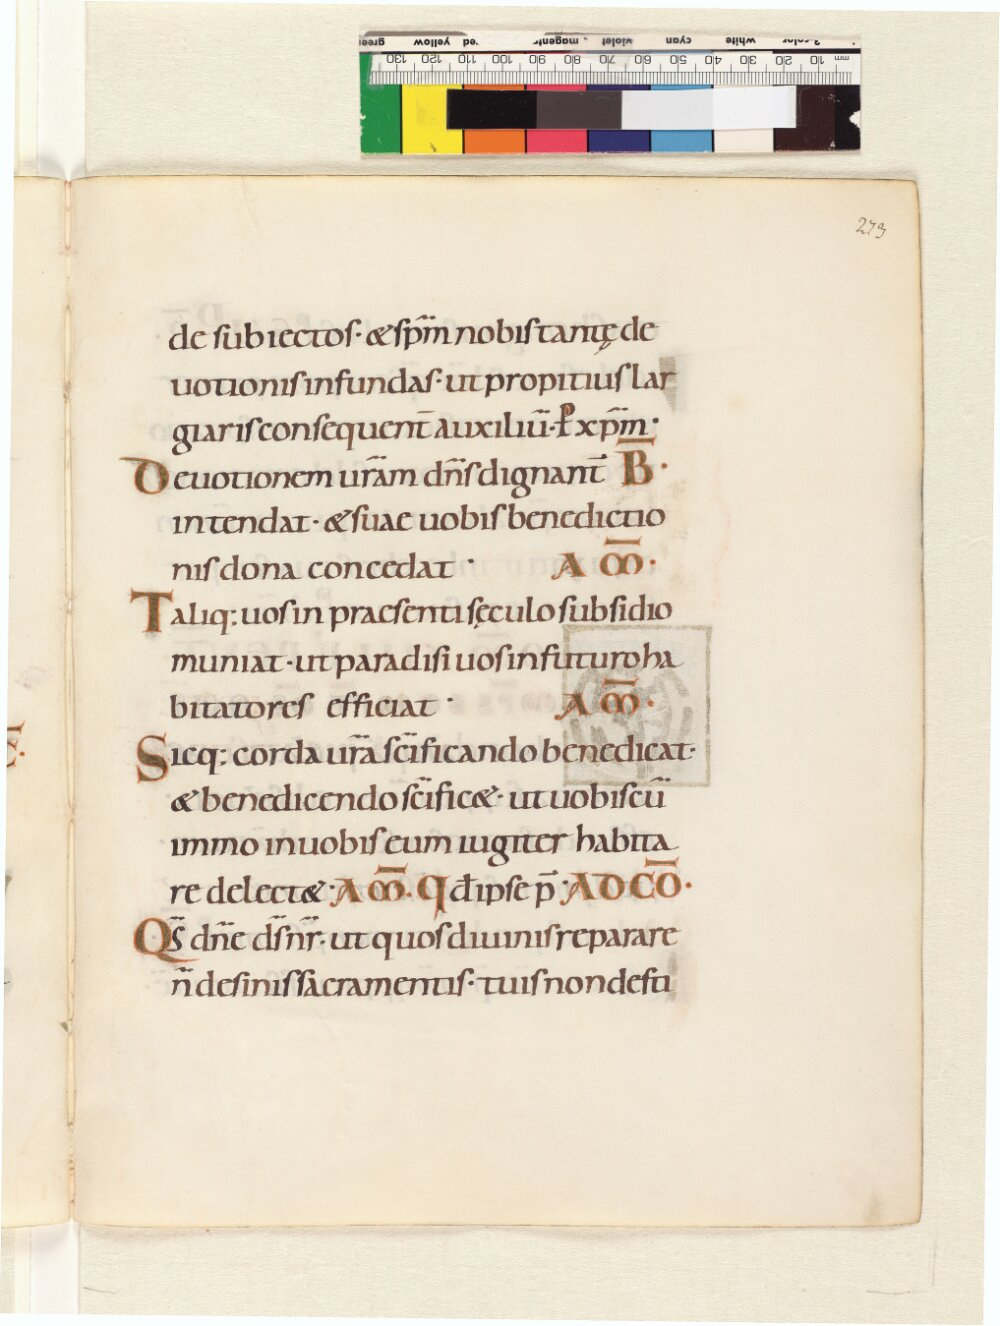 273
de subiectos· & sp̄m nobis tantę de
uotionis infundas· ut propitius lar
giaris consequent̄ auxiliū· P̄ xp̄m·
Deuotionem ur̄am dn̄s dignant̄ B̄·
intendat· & suae uobis benedictio
nis dona concedat· A M̄·
Taliq: uos in praesenti sęculo subsidio
muniat· ut paradisi uos in futuro ha
bitatores efficiat· A M̄·
Sicq: corda ur̄a sc̄ificando benedicat·
& benedicendo sc̄ific&· ut uobiscū
immo in uobis eum iugiter habita
re delect&· A M̄· q đ ipse p̄· AD CŌ·
Qs̄ dn̄e ds̄ nr̄· ut quos diuinis reparare
n̄ desinis sacramentis· tuis non desti